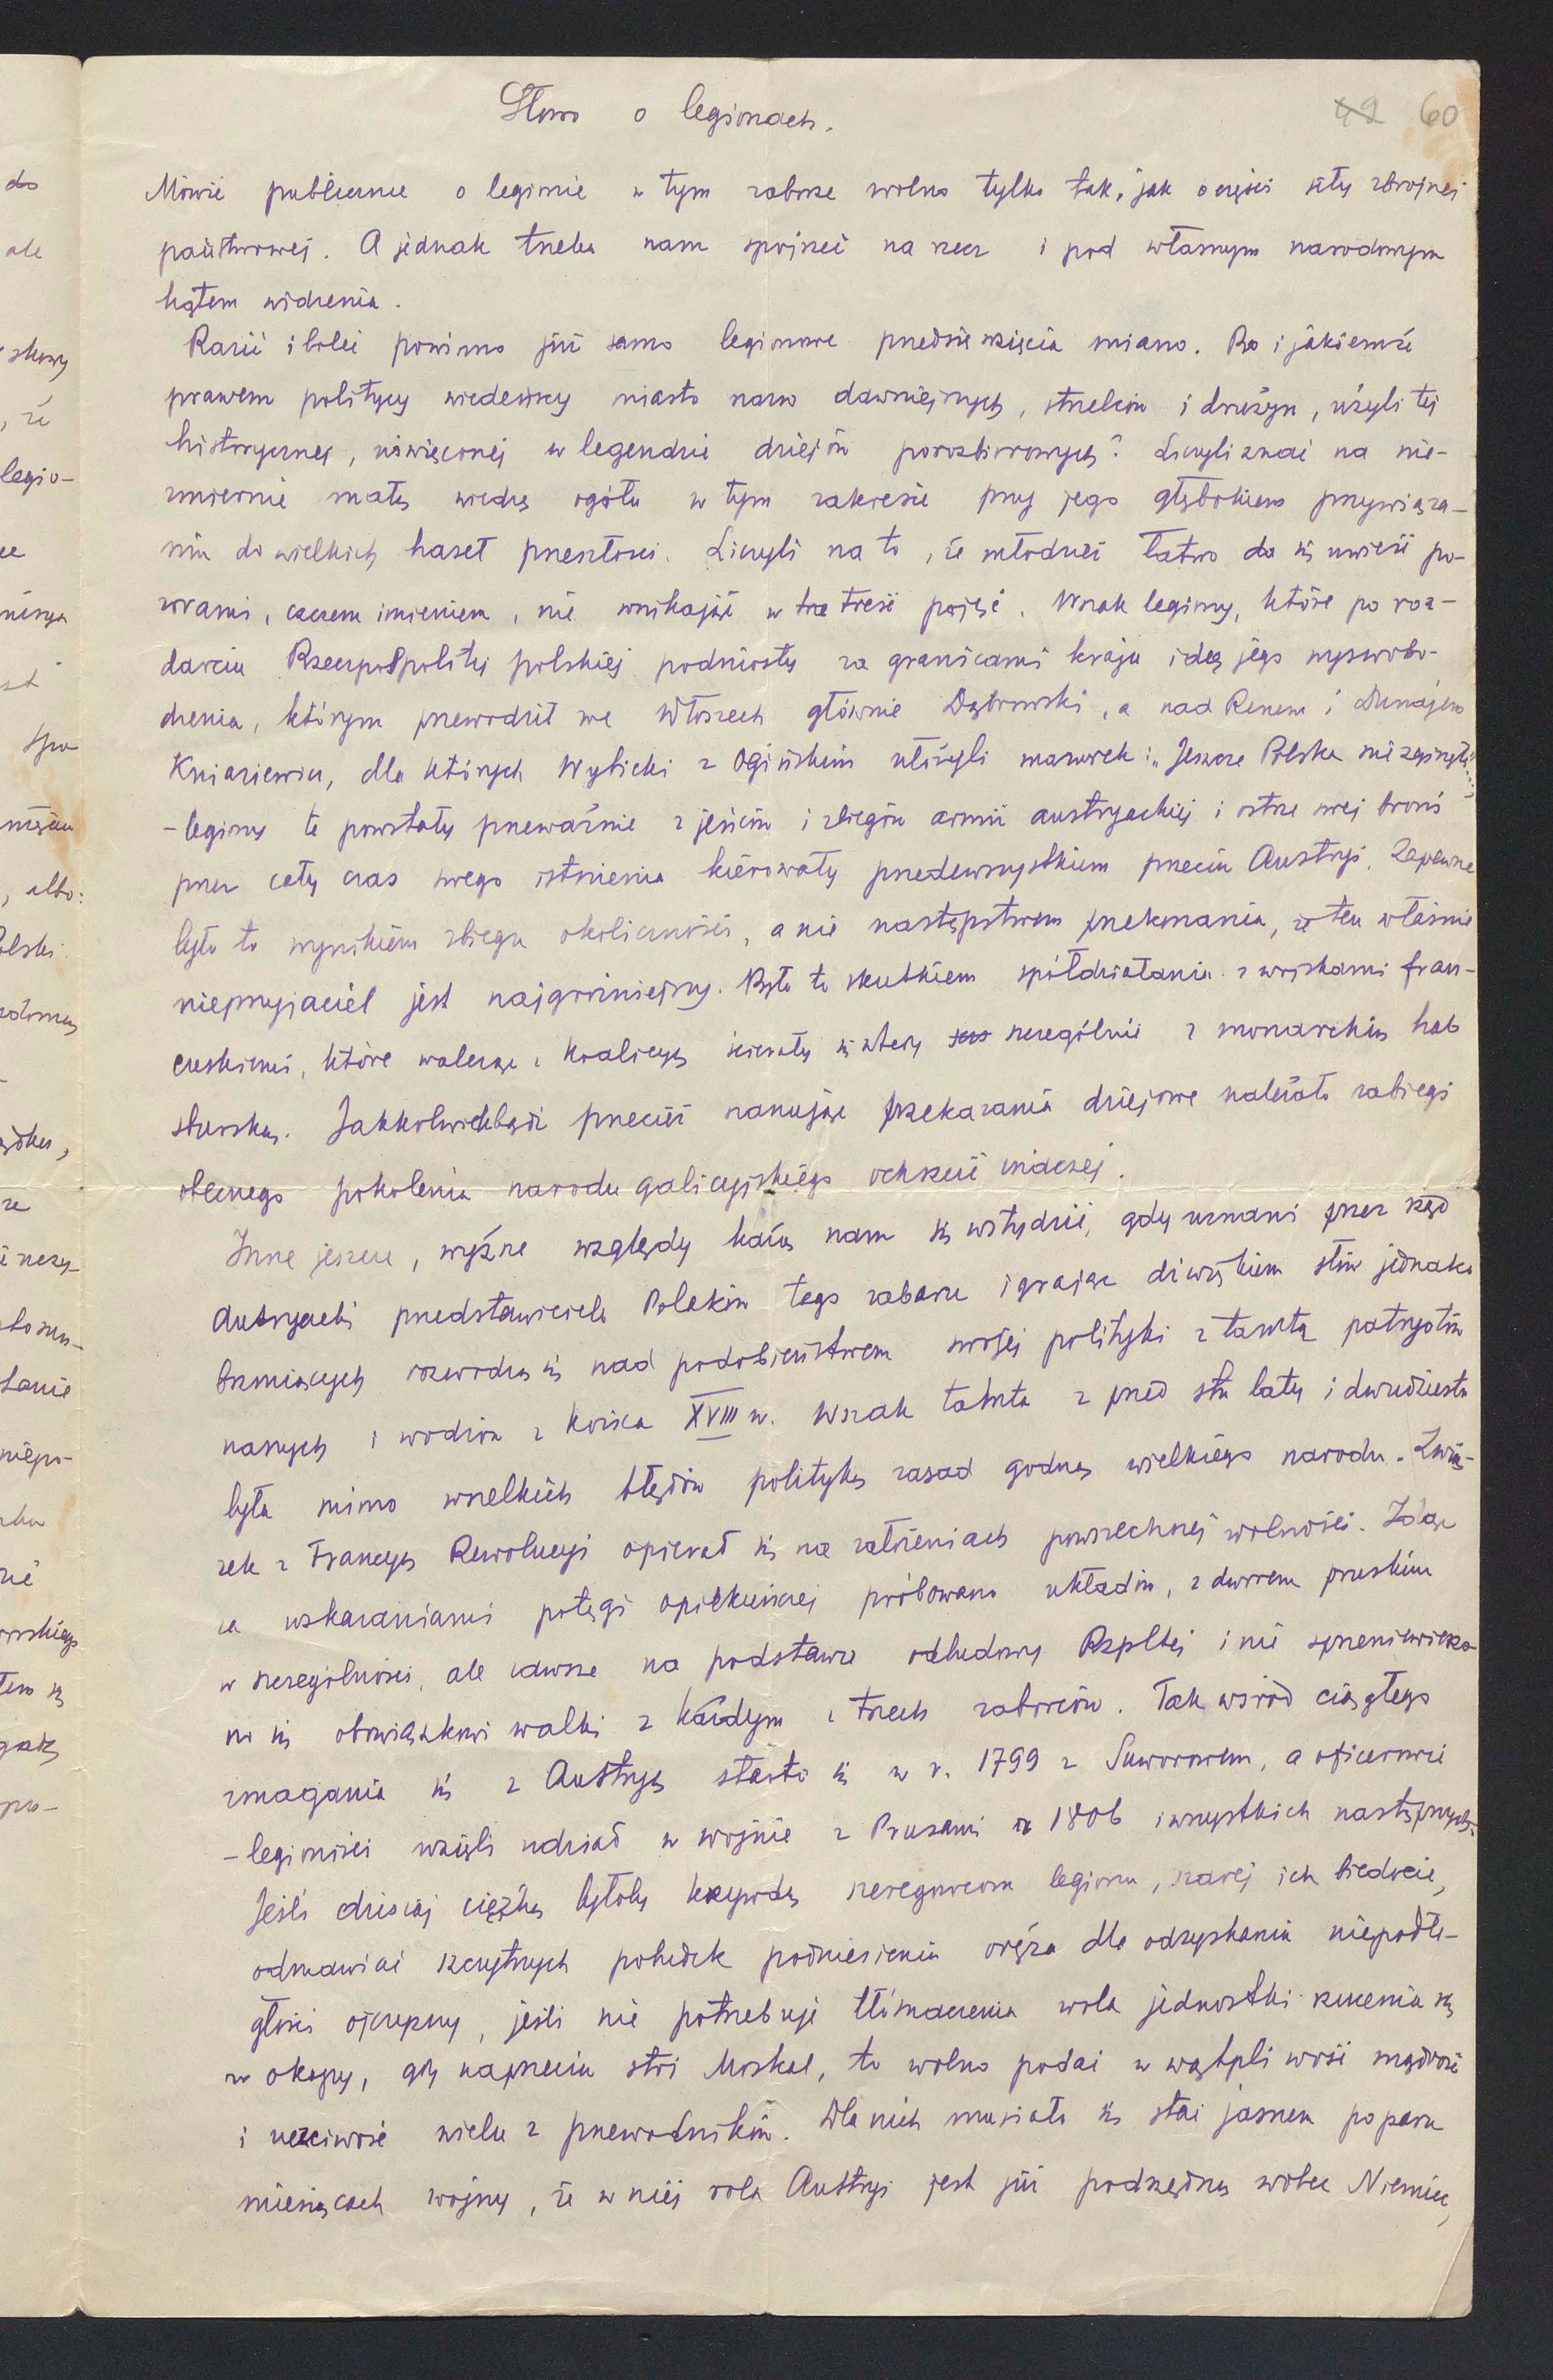 Słowo o legionach.
42 60
Mówić publicznie o legionie w tym zaborze wolno tylko tak, jak o części siły zbrojnej
państwowej. A jednak trzeba nam spojrzeć na rzecz i pod własnym narodowym
kątem widzenia.
Razić i boleć powinno już samo legionowe przedsięwzięcia miano. Bo i jakiemże
prawem politycy wiedeńscy miasto nazw dawniejszych, strzelców i drużyn, użyli tej
historycznej, uświęconej w legendzie dziejów porozbiorowych? Liczyli znać na nie-
zmiernie małą wiedzę ogółu w tym zakresie przy jego głębokiem przywiąza-
niu do wielkich haseł przeszłości. Liczyli na to, że młodzież łatwo da się uwieść po-
zorami, czczem imieniem, nie wnikając w treść pojęć. Wszak legiony, które po roz-
darciu Rzeczpospolitej polskiej podniosły za granicami kraju ideę jego wyswobo-
dzenia, którym przewodził we Włoszech głównie Dąbrowski, a nad Renem i Dunajem
Kniaziewicz, dla których Wybicki z Ogińskim ułożyli mazurek: „Jeszcze Polska nie zginęła...
- legiony te powstały przeważnie z jeńców i zbiegów armii austryackiej i ostrze swej broni
przez cały czas swego istnienia kierowały przedewszystkiem przeciw Austryi. Zapewne
było to wynikiem zbiegu okoliczności, a nie następstwem przekonania, że ten właśnie
nieprzyjaciel jest najgroźniejszy. Było to skutkiem spółdziałania z wojskami fran-
cuskiemi, które walcząc z koalicyą ścierały się wtedy szczególnie z monarchią hab
sburską. Jakkolwiekbądź przecież szanując przekazania dziejowe należało zabiegi
obecnego pokolenia narodu galicyjskiego ochrzcić inaczej.
Inne jeszcze, wyższe względy każą nam się wstydzić, gdy uznani przez rząd
austryacki przedstawiciele Polaków tego zaboru igrając dźwiękiem słów jednako
brzmiących rozwodzą się nad podobieństwem swojej polityki z tamtą patryotów
naszych i wodzów z końca XVIII w. Wszak tamta z przed stu laty i dwudziestu
była mimo wszelkich błędów polityką zasad godną wielkiego narodu. Zwią-
zek z Francyą Rewolucyi opierał się na założeniach powszechnej wolności. Idąc
za wskazaniami potęgi opiekuńczej próbowano układów, z dworem pruskim
w szczególności, ale zawsze na podstawie odbudowy Rzpltej i nie sprzeniewierzo
no się obowiązkowi walki z każdym z trzech zaborców. Tak wśród ciągłego
zmagania się z Austryą starto się w r. 1799 z Suworowem, a oficerowie
- legioniści wzięli udział w wojnie z Prusami r. 1806 i wszystkich następnych.
Jeśli dzisiaj ciężką byłoby krzywdą szeregowcom legionu, szarej ich biedocie,
odmawiać szczytnych pobudek podniesienia oręża dla odzyskania niepodle-
głości ojczyzny, jeśli nie potrzebuje tłómaczenia wola jednostki rzucenia się
w okopy, gdy naprzeciw stoi Moskal, to wolno podać w wątpliwość mądrość
i uczciwość wielu z przewodników. Dla nich musiało się stać jasnem po paru
miesiącach wojny, że w niej rola Austryi jest już podrzędną wobec Niemiec,
do
ale
, że
legio-
spo
, albo:
niepo-
po-